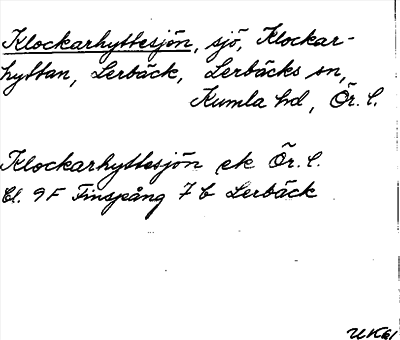 Klockarhyttesjön, sjö, Klockar-
hyttan, Lerbäck, Lerbäcks sn,
Kumla hd, Ör. l.
Klockarhyttesjön ek Ör. l.
Bl. 9F Finspång 7 b Lerbäck
UK61